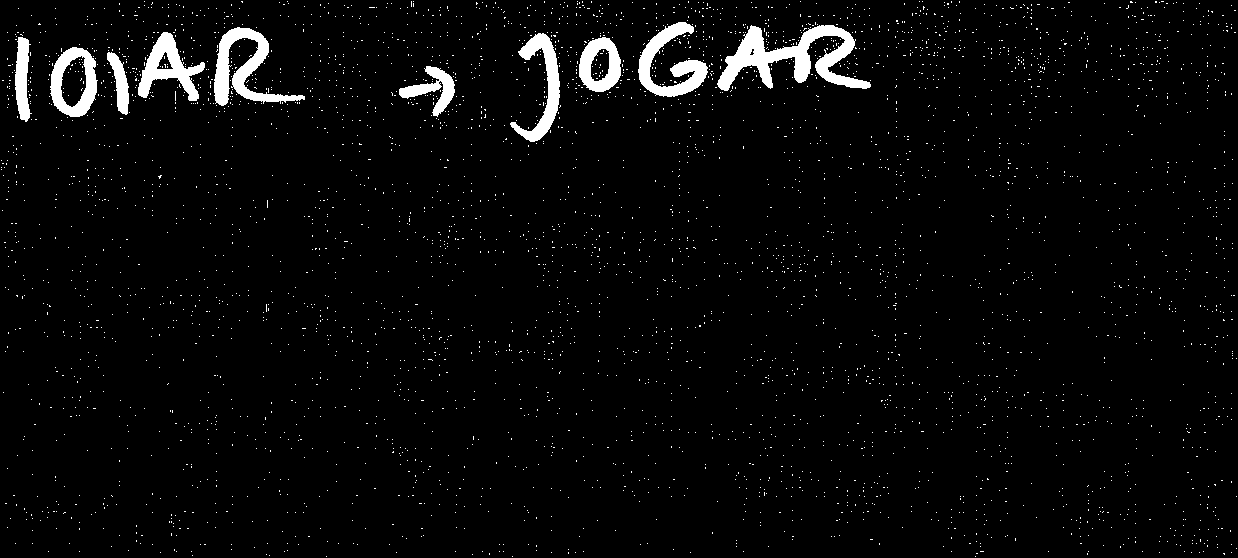 IOIAR → JOGAR